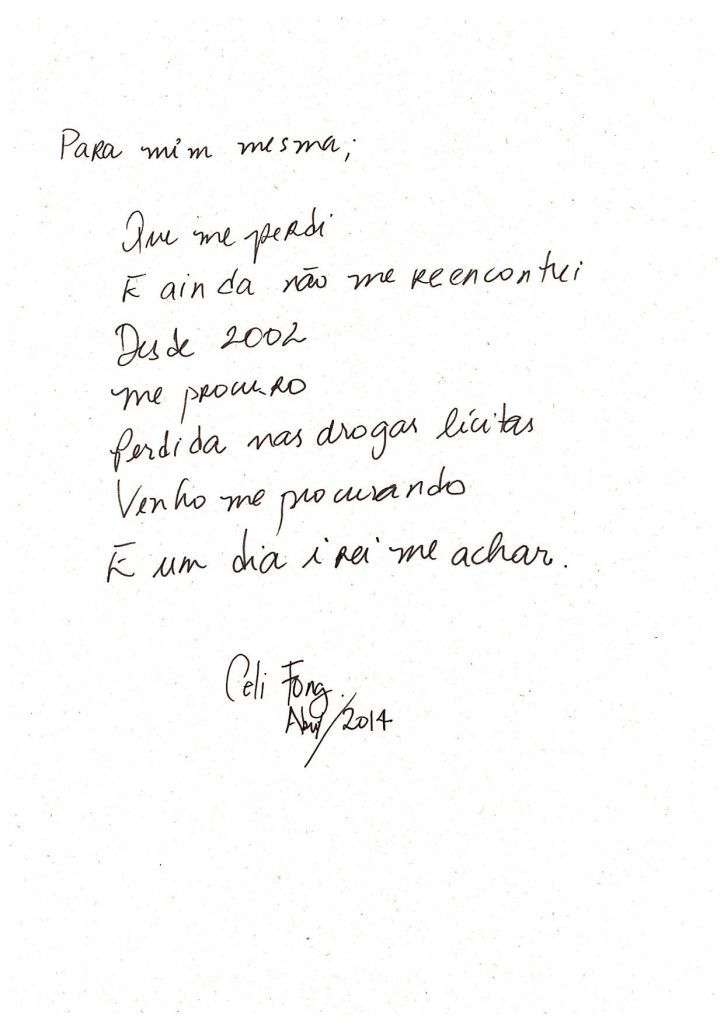 Para mim mesma;
Que me perdi
E ainda não me reencontrei
Desde 2002
me procuro
Perdida nas drogas lícitas
Venho me procurando
E um dia irei me achar.
Celi Fong.
Abril/2014